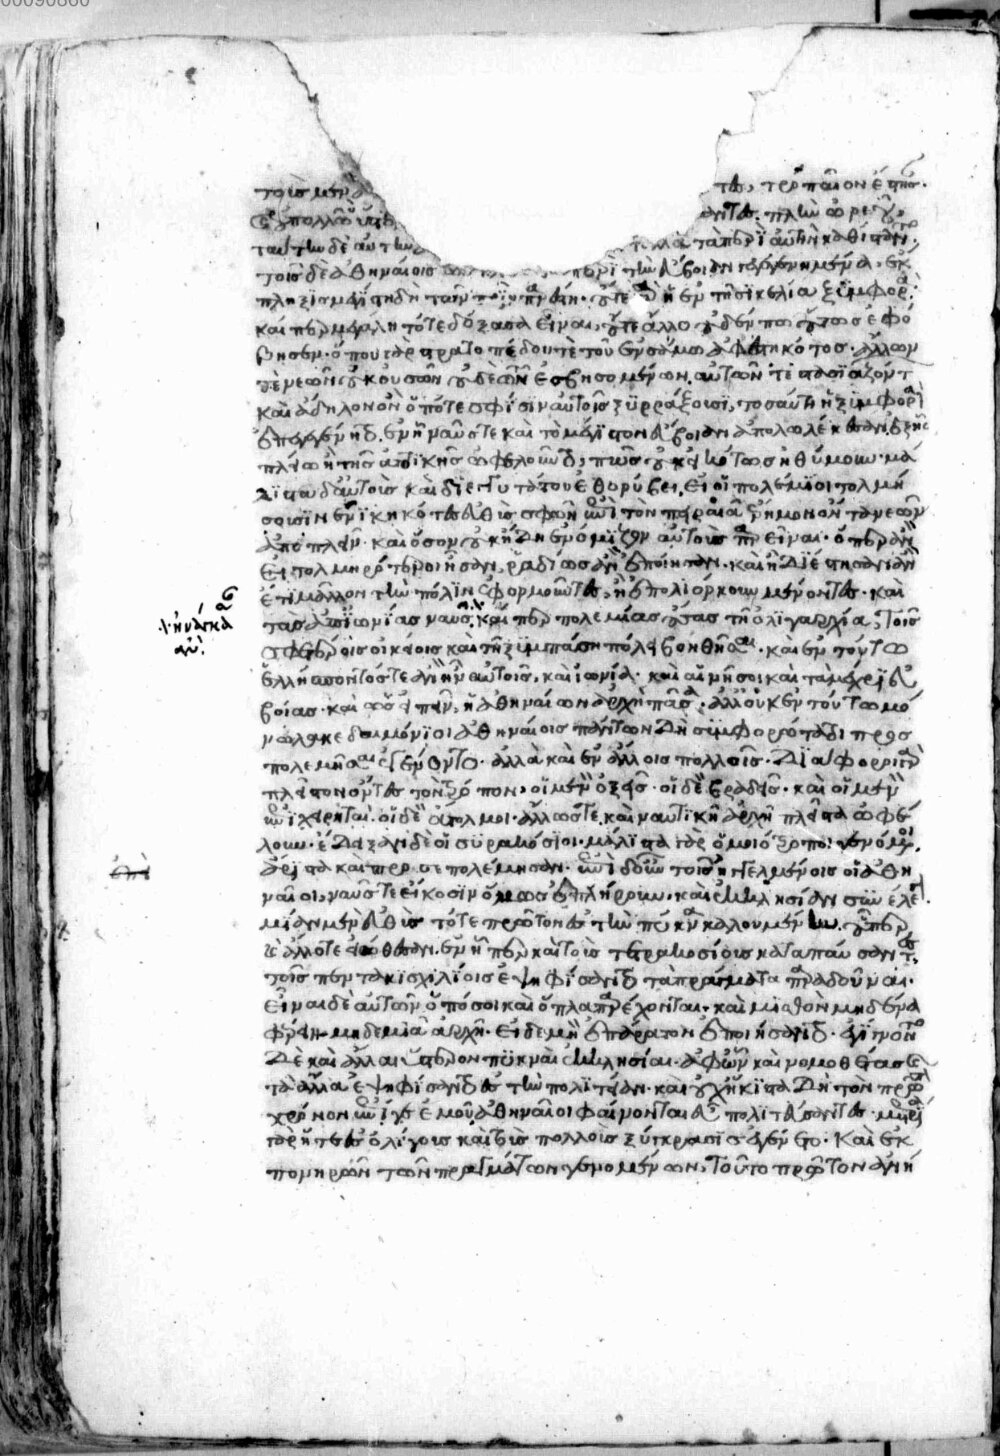 τοῖς μὲν
τες, τροπαῖον ἔστησ.
οὐ πολλῶ ὕστε σαντες πλὴν ὠρεοῦ,
ταύτην δὲ αὐτὴν τἄλλα τὰ περὶ αὐτὴν καθίσταντο.
τοῖς δὲ ἀθηναίοις περὶ τὴν εὔβοιαν γεγενημένα, ἔκ
πληξις μεγίστη δὴ τῶν πρὶν παρέστη. οὔτε γὰρ ἡ ἐν τῆ σικελία ξυμφορὰ.
καί περ μεγάλη τότε δόξασα εἶναι, οὔτε ἄλλο οὐδέν πω οὕτως ἐφό
βησεν. ὅπου γὰρ στρατοπέδου τὲ τοῦ ἐν σάμω ἀφεστηκότος. ἄλλων
τὲ νεῶν οὐκ οὐσῶν οὐδὲ τῶν ἐσβησομένων. αὐτῶν τὲ στασιαζόντ
καὶ ἄδηλον ὂν ὁπότε σφίσιν αὐτοῖς ξυρράξουσι, τοσαύτη ἡ ξυμφορὰ
ἐπεγεγένητο, ἐν ἧ ναῦς τε καὶ τὸ μέγιστον εὔβοιαν ἀπολωλέκεσαν, ἐξ ἧς
πλείω ἢ τῆς ἀττικῆς ὠφελοῦντο, πῶς οὐκ εἰκότως ἠθύμουν. μά
λιστα δ' αὐτοὺς καὶ δι' ἐγγυτάτου ἐθορύβει, εἰ οἱ πολέμιοι τολμή
σουσιν νενικηκότες εὐθὺς σφῶν ἐπὶ τὸν πειραιᾶ ἐρῆμον ὄντα νεῶν
ἀποπλεῖν. καὶ ὅσον οὐκ ἤδη ἐνόμιζον αὐτοὺς παρεῖναι. ὅπερ ἂν
εἰ τολμηρότεροι ἦσαν, ῥαδίως ἂν ἐποίησαν. καὶ ἢ διέστησαν ἂν
ἔτι μᾶλλον τὴν πόλιν ἐφορμοῦντες, ἢ εἰ ἐπολιόρκουν μένοντες. καὶ
τὰς ἀπ' ἰωνίας ναῦς. καί περ πολεμίας οὔσας τῆ ὀλιγαρχία, τοῖς
σφετέροις οἰκείοις καὶ τῆ ξυμπάση πόλει βοηθῆσαι. καὶ ἐν τούτω
ἑλλήσποντός τε ἂν ἦν αὐτοῖς, καὶ ἰωνία. καὶ αἱ νῆσοι καὶ τὰ μέχρι εὐ
βοίας. καὶ ὡς εἰπεῖν, ἡ ἀθηναίων ἀρχὴ πᾶσα. ἀλλ' οὐκ ἐν τούτω μό
νω λακεδαιμόνιοι ἀθηναίοις πάντων δὴ ξυμφορώτατοι προς
πολεμῆσαι ἐγένοντο. ἀλλὰ καὶ ἐν ἄλλοις πολλοῖς. διάφοροι γὰρ
πλεῖστον ὄντες τὸν τρόπον, οἱ μὲν ὀξεῖς. οἱ δὲ βραδεῖς. καὶ οἱ μὲν
ἐπιχειρηταὶ. οἱ δὲ ἄτολμοι. ἄλλως τε καὶ ναυτικῆ ἀρχῆ πλεῖστα ὠφέ
λουν. ἔδειξαν δὲ οἱ συρακόσιοι. μάλιστα γὰρ ὁμοιότροποι γενόμενοι
ἄριστα καὶ προσεπολέμησαν. ἐπὶ δ' οὖν τοῖς ἠγγελμένοις οἱ ἀθη
ναῖοι, ναῦς τε εἴκοσιν ὅμως ἐπλήρουν. καὶ ἐκκλησίαν ξυνέλε
μίαν μὲν εὐθὺς τότε πρῶτον ἐς τὴν πύκνα καλουμένην. οὗπερ
καὶ ἄλλοτε εἰώθεσαν. ἐν ἧπερ καὶ τοὺς τετρακοσίους καταπαύσαντες.
τοῖς πεντακισχιλίοις ἐψηφίσαντο τὰ πράγματα παραδοῦναι.
εἶναι δὲ αὐτῶν ὁπόσοι καὶ ὅπλα παρέχονται. καὶ μισθὸν μηδένα
φέρειν μηδεμιᾶ ἀρχῆ. εἰ δὲ μὴ ἐπάρατον ἐποιήσαντο. ἐγίγνοντο
δὲ καὶ ἄλλαι ὕστερον πυκναὶ ἐκκλησίαι. ἀφ' ὧν καὶ νομοθέτας καὶ
τἄλλα ἐψηφίσαντο ἐς τὴν πολιτείαν. καὶ οὐχ ἥκιστα δὴ τὸν πρῶτον
χρόνον ἐπί γε ἐμοῦ ἀθηναῖοι φαίνονται εὖ πολιτεύσαντες. μετρία
γὰρ ἥ τε ἐς ὀλίγους καὶ τοὺς πολλοὺς ξύγκρασις ἐγένετο. καὶ ἐκ
πονηρῶν τῶν πραγμάτων γενομένων, τοῦτο πρῶτον ἀνή